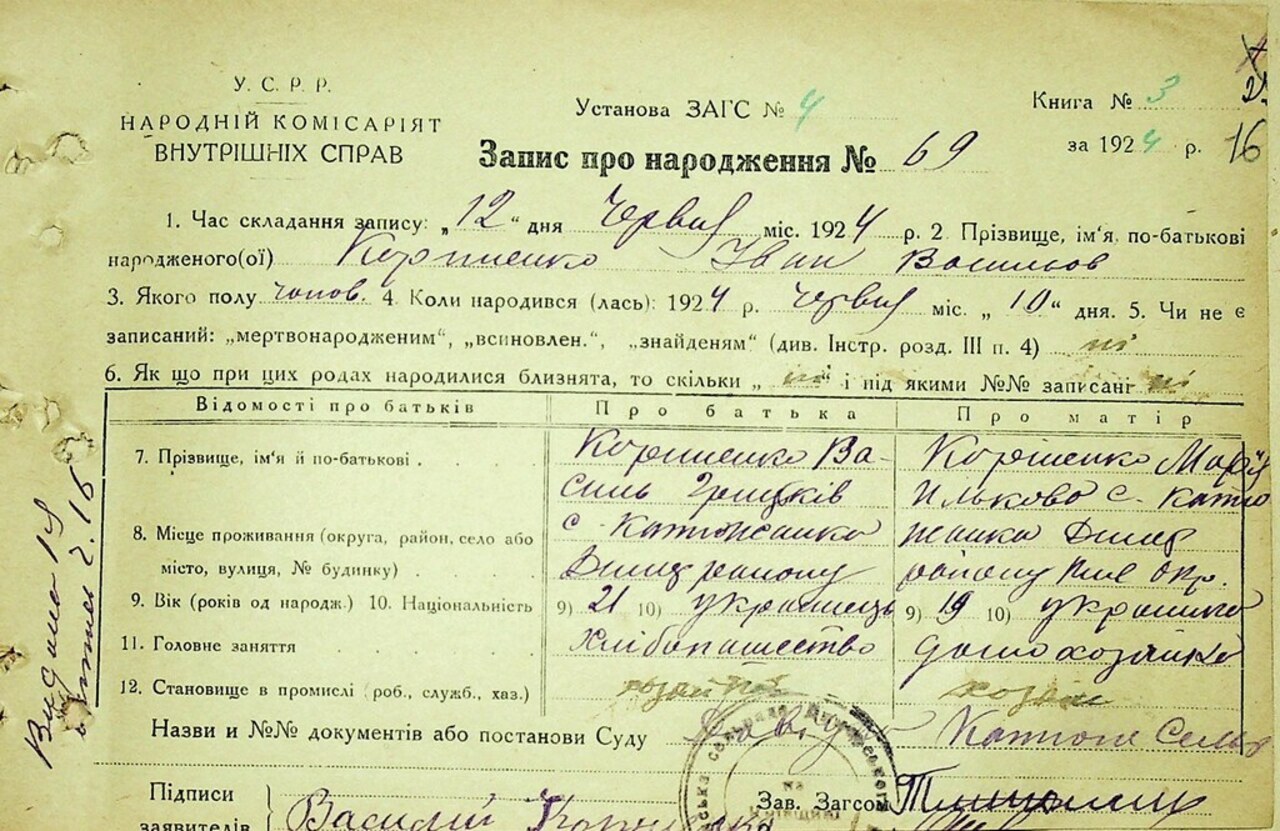 У. С. Р. Р.
НАРОДНІЙ КОМІСАРІЯТ
ВНУТРІШНІХ СПРАВ
Установа ЗАГС № 4
Книга № 3
за 1924 р. 16
Запис про народження № 69
1. Час складання запису: „12“ дня Червня міс. 1924 р. 2. Прізвище, ім'я, по-батькові
народженого(ої) Іван Васильов
3. Якого полу чолов. 4. Коли народився (лась): 1924 р. червня міс. „10“ дня. 5. Чи не є
записаний: „мертвонародженим“, „всиновлен.“, „знайденям“ (див. Інстр. розд. III п. 4) ні
6. Як що при цих родах народилися близнята, то скільки „ні“ і під якими №№ записані ні
Відомості про батьків Про батька Про матір
7. Прізвище, ім'я й по-батькові Ва-
силь Грицків
8. Місце проживання (округа, район, село або с. Катюжанка
місто, вулиця, № будинку) Димер району району Київ окр.
9. Вік (років од народж.) 10. Національність 9) 21 10) українець 9) 19 10) українка
11. Головне заняття хлібопашество домохозяйка
12. Становище в промислі (роб., служб., хаз.)
Назви и №№ документів або постанови Суду
Підписи Зав. Загсом
заявителів Василий